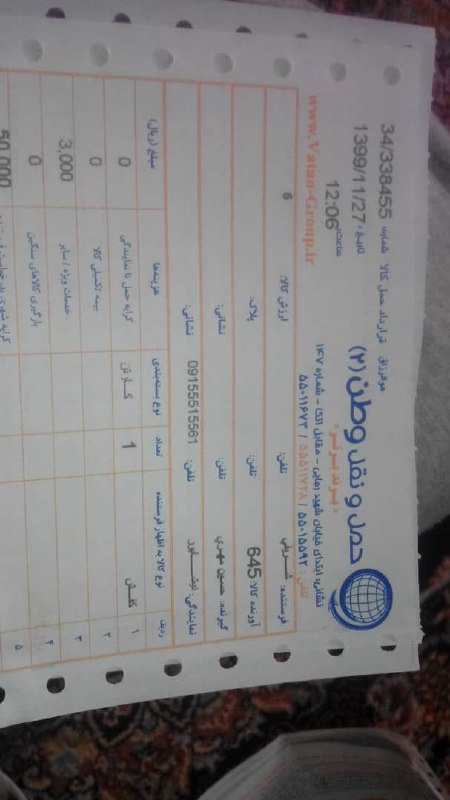 هوالرزاق
حمل و نقل وطن (۲)
« برند برتر »
قرارداد حمل کالا شماره: 34/338455
تاریخ: 1399/11/27
ساعت: 12:06
نشانی: ابتدای خیابان شهید رجایی - مقابل اتکا - شماره ۱۴۷
تلفن: ۵۵۰۱۵۵۹۲ / ۵۵۵۱۱۷۲۸ / ۵۵۰۱۱۶۷۳
www.Vatan-Group.ir
فرستنده: شریفی تلفن: ارزش کالا: 6
آورنده کالا: 645 تلفن: پلاک:
گیرنده: حسین مهری تلفن: نشانی:
نمایندگی: نیشابور تلفن: 09155515561 نشانی:
ردیف نوع کالا به اظهار فرستنده تعداد نوع بسته‌بندی هزینه‌ها مبلغ (ریال)
۱ کفش 1 کارتن کرایه حمل تا نمایندگی 0
۲ بیمه تکمیلی کالا 0
۳ خدمات ویژه / سایر 3,000
۴ بارگیری کالاهای سنگین 0
۵ کرایه شهری 50,000